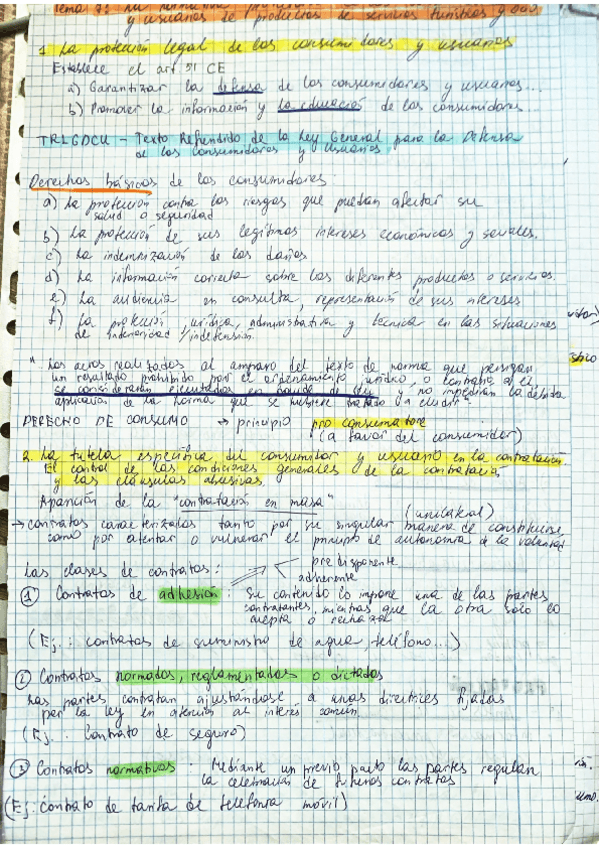 Tema 7: La normativa
y usuarios de productos de servicios turísticos y ocio
1. La protección legal de los consumidores y usuarios
Establece el art 51 CE
a) Garantizar la defensa de los consumidores y usuarios...
b) Promover la información y la educación de los consumidores...
TRLGDCU - Texto Refundido de la Ley General para la Defensa
de los consumidores y Usuarios
Derechos básicos de los consumidores
a) La protección contra los riesgos que puedan afectar su
salud o seguridad
b) La protección de sus legítimos intereses económicos y sociales.
c) La indemnización de los daños
d) La información correcta sobre los diferentes productos o servicios.
e) La audiencia en consulta, representación de sus intereses
f) La protección jurídica, administrativa y técnica en las situaciones
de inferioridad / indefensión.
" Los actos realizados al amparo del texto de norma que persigan
un resultado prohibido por el ordenamiento jurídico, o contrario a él
se considerarán ejecutados en fraude de ley y no impedirán la debida
aplicación de la norma que se hubiere tratado de eludir"
DERECHO DE CONSUMO → principio pro consumatore
(a favor del consumidor)
2. La tutela específica del consumidor y usuario en la contratación.
El control de las condiciones generales de la contratación
y las cláusulas abusivas
Aparición de la "contratación en masa"
(unilateral)
→ contratos caracterizados tanto por su singular manera de constituirse
como por afectar o vulnerar el principio de autonomía de la voluntad
Las clases de contratos:
predisponente
adherente
① Contratos de adhesión: Su contenido lo impone una de las partes
contratantes, mientras que la otra solo lo
acepta o rechaza
(Ej.: contratos de suministro de agua, teléfono...)
② Contratos normados, reglamentados o dictados
Las partes contratan ajustándose a unas directrices fijadas
por la ley en atención al interés común
(Ej. Contrato de seguro)
③ Contratos normativos: Mediante un previo pacto las partes regulan
la celebración de futuros contratos
(Ej: contrato de tarifa de telefonía móvil)